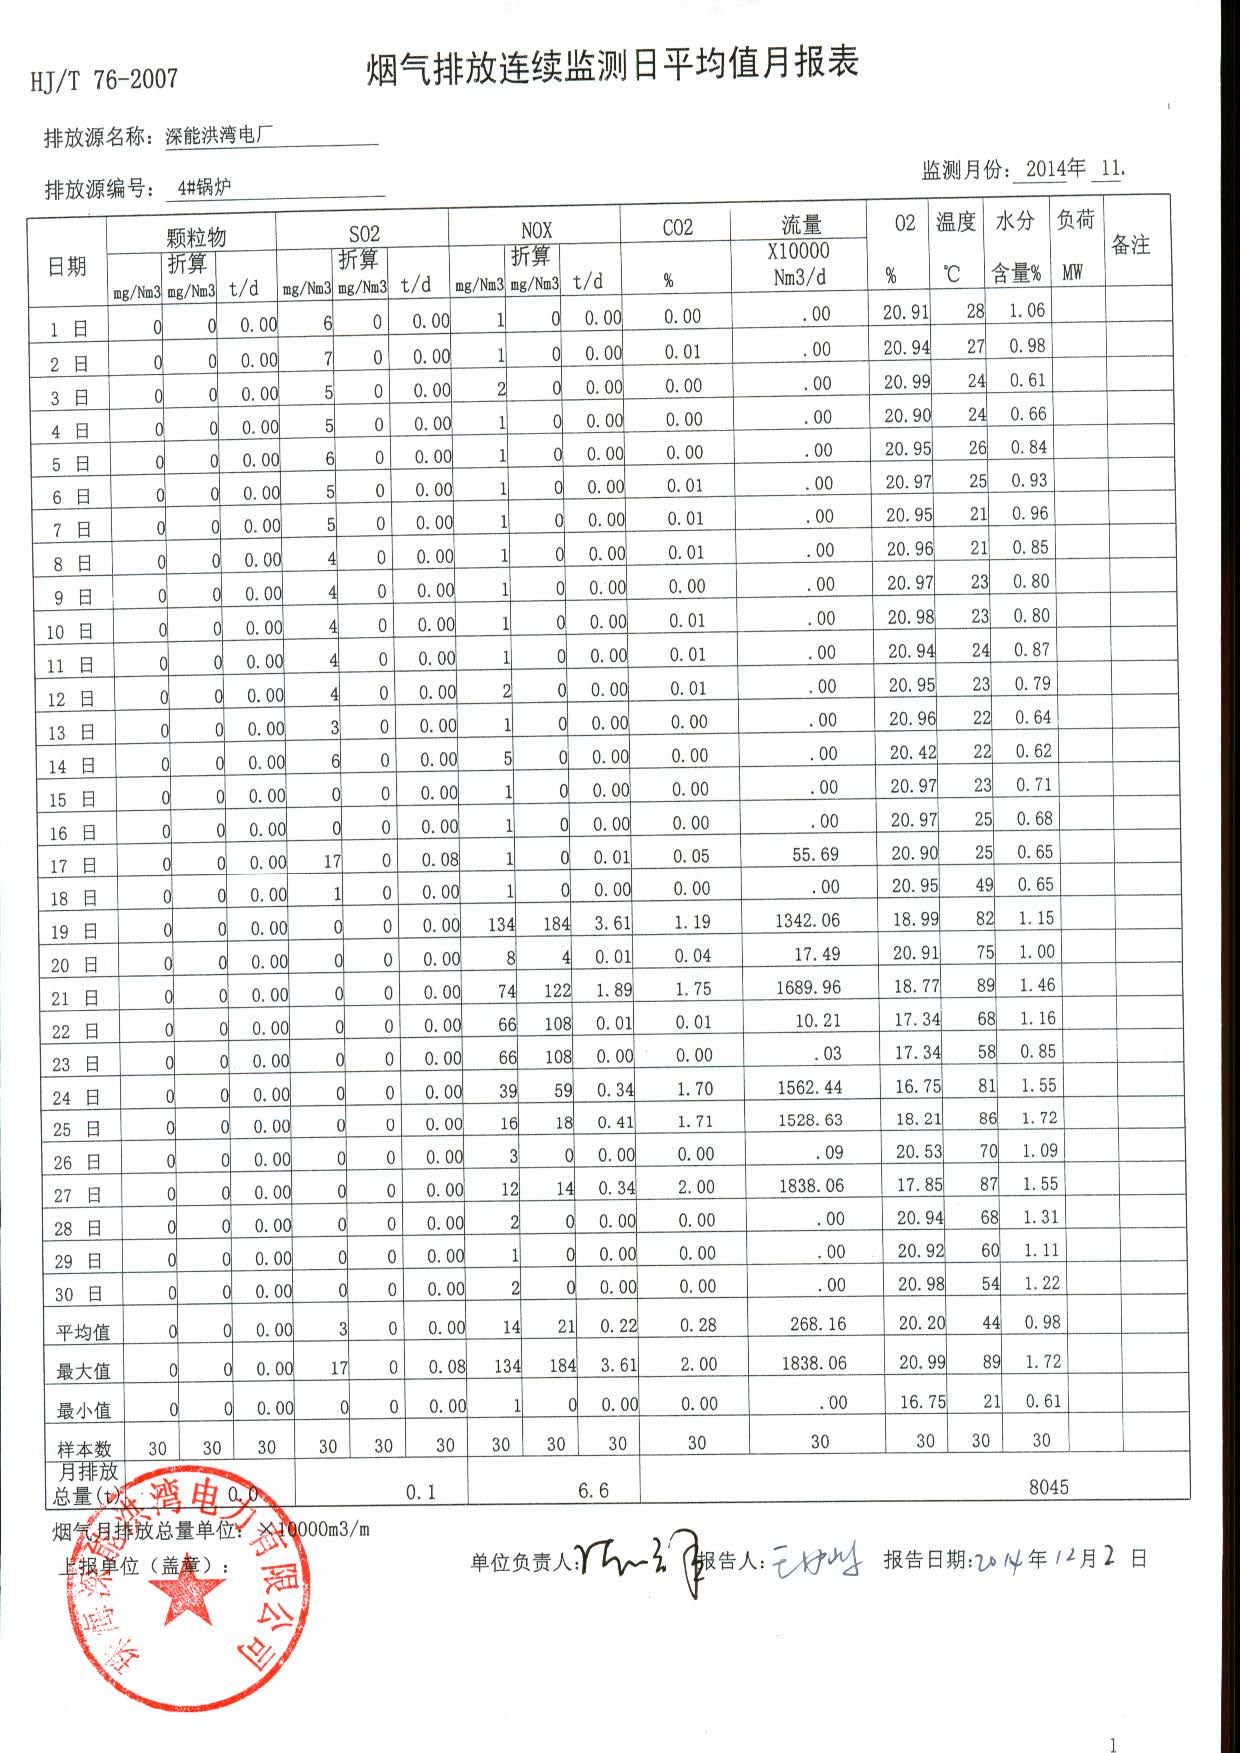 HJ/T 76-2007
烟气排放连续监测日平均值月报表
排放源名称: 深能洪湾电厂
排放源编号: 4#锅炉
监测月份: 2014年 11.
日期 颗粒物 SO2 NOX CO2 流量 O2 温度 水分 负荷 备注
折算 折算 折算 X10000
mg/Nm3 mg/Nm3 t/d mg/Nm3 mg/Nm3 t/d mg/Nm3 mg/Nm3 t/d % Nm3/d % ℃ 含量% MW
1 日 0 0 0.00 6 0 0.00 1 0 0.00 0.00 .00 20.91 28 1.06
2 日 0 0 0.00 7 0 0.00 1 0 0.00 0.01 .00 20.94 27 0.98
3 日 0 0 0.00 5 0 0.00 2 0 0.00 0.00 .00 20.99 24 0.61
4 日 0 0 0.00 5 0 0.00 1 0 0.00 0.00 .00 20.90 24 0.66
5 日 0 0 0.00 6 0 0.00 1 0 0.00 0.00 .00 20.95 26 0.84
6 日 0 0 0.00 5 0 0.00 1 0 0.00 0.01 .00 20.97 25 0.93
7 日 0 0 0.00 5 0 0.00 1 0 0.00 0.01 .00 20.95 21 0.96
8 日 0 0 0.00 4 0 0.00 1 0 0.00 0.01 .00 20.96 21 0.85
9 日 0 0 0.00 4 0 0.00 1 0 0.00 0.00 .00 20.97 23 0.80
10 日 0 0 0.00 4 0 0.00 1 0 0.00 0.01 .00 20.98 23 0.80
11 日 0 0 0.00 4 0 0.00 1 0 0.00 0.01 .00 20.94 24 0.87
12 日 0 0 0.00 4 0 0.00 2 0 0.00 0.01 .00 20.95 23 0.79
13 日 0 0 0.00 3 0 0.00 1 0 0.00 0.00 .00 20.96 22 0.64
14 日 0 0 0.00 6 0 0.00 5 0 0.00 0.00 .00 20.42 22 0.62
15 日 0 0 0.00 0 0 0.00 1 0 0.00 0.00 .00 20.97 23 0.71
16 日 0 0 0.00 0 0 0.00 1 0 0.00 0.00 .00 20.97 25 0.68
17 日 0 0 0.00 17 0 0.08 1 0 0.01 0.05 55.69 20.90 25 0.65
18 日 0 0 0.00 1 0 0.00 1 0 0.00 0.00 .00 20.95 49 0.65
19 日 0 0 0.00 0 0 0.00 134 184 3.61 1.19 1342.06 18.99 82 1.15
20 日 0 0 0.00 0 0 0.00 8 4 0.01 0.04 17.49 20.91 75 1.00
21 日 0 0 0.00 0 0 0.00 74 122 1.89 1.75 1689.96 18.77 89 1.46
22 日 0 0 0.00 0 0 0.00 66 108 0.01 0.01 10.21 17.34 68 1.16
23 日 0 0 0.00 0 0 0.00 66 108 0.00 0.00 .03 17.34 58 0.85
24 日 0 0 0.00 0 0 0.00 39 59 0.34 1.70 1562.44 16.75 81 1.55
25 日 0 0 0.00 0 0 0.00 16 18 0.41 1.71 1528.63 18.21 86 1.72
26 日 0 0 0.00 0 0 0.00 3 0 0.00 0.00 .09 20.53 70 1.09
27 日 0 0 0.00 0 0 0.00 12 14 0.34 2.00 1838.06 17.85 87 1.55
28 日 0 0 0.00 0 0 0.00 2 0 0.00 0.00 .00 20.94 68 1.31
29 日 0 0 0.00 0 0 0.00 1 0 0.00 0.00 .00 20.92 60 1.11
30 日 0 0 0.00 0 0 0.00 2 0 0.00 0.00 .00 20.98 54 1.22
平均值 0 0 0.00 3 0 0.00 14 21 0.22 0.28 268.16 20.20 44 0.98
最大值 0 0 0.00 17 0 0.08 134 184 3.61 2.00 1838.06 20.99 89 1.72
最小值 0 0 0.00 0 0 0.00 1 0 0.00 0.00 .00 16.75 21 0.61
样本数 30 30 30 30 30 30 30 30 30 30 30 30 30 30
月排放
总量(t) 0.0 0.1 6.6 8045
烟气月排放总量单位: ×10000m3/m
上报单位(盖章): 单位负责人: 报告人: 报告日期:2014年12月2日
珠海深能洪湾电力有限公司
1